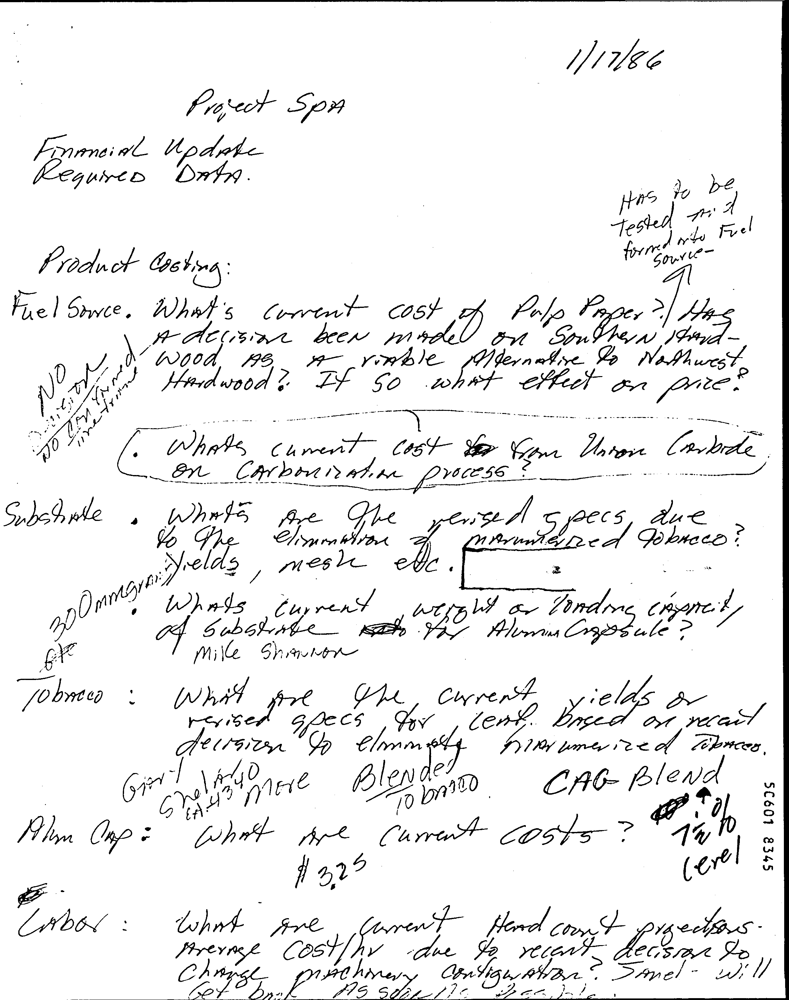 1/17/86
Project SpA
Financial Update
Required Data.
Has to be
Tested and
formed into Fuel
Source-
Product Costing:
Fuel Source. What's current cost of Pulp Paper? Has
A decision been made on Southern Hard-
wood As A viable Alternative to Northwest
Hardwood? If so what effect on price?
NO
Decision
NO
. Whats current cost from Union Carbide
on Carbonization process?
Substrate . Whats Are the revised specs due
to the elimination of marumerized Tobacco?
Yields, mesh etc.
300 mmgram
. Whats current weight or loading capacity
of Substrate for Alumin Capsule?
Mike Shannon
Tobacco : What Are the current yields or
revised specs for leaf. based on recent
decision to eliminate marumerized Tobacco.
More Blended CAG Blend
Tobacco
7½ %
level
Alum Cap : What Are Current costs ?
$ 3.25
Labor : What Are Current Head count projections.
Average Cost/hr due to recent decision to
Change machinery configuration? Janet - will
Get back As soon As possible.
5C601 8345